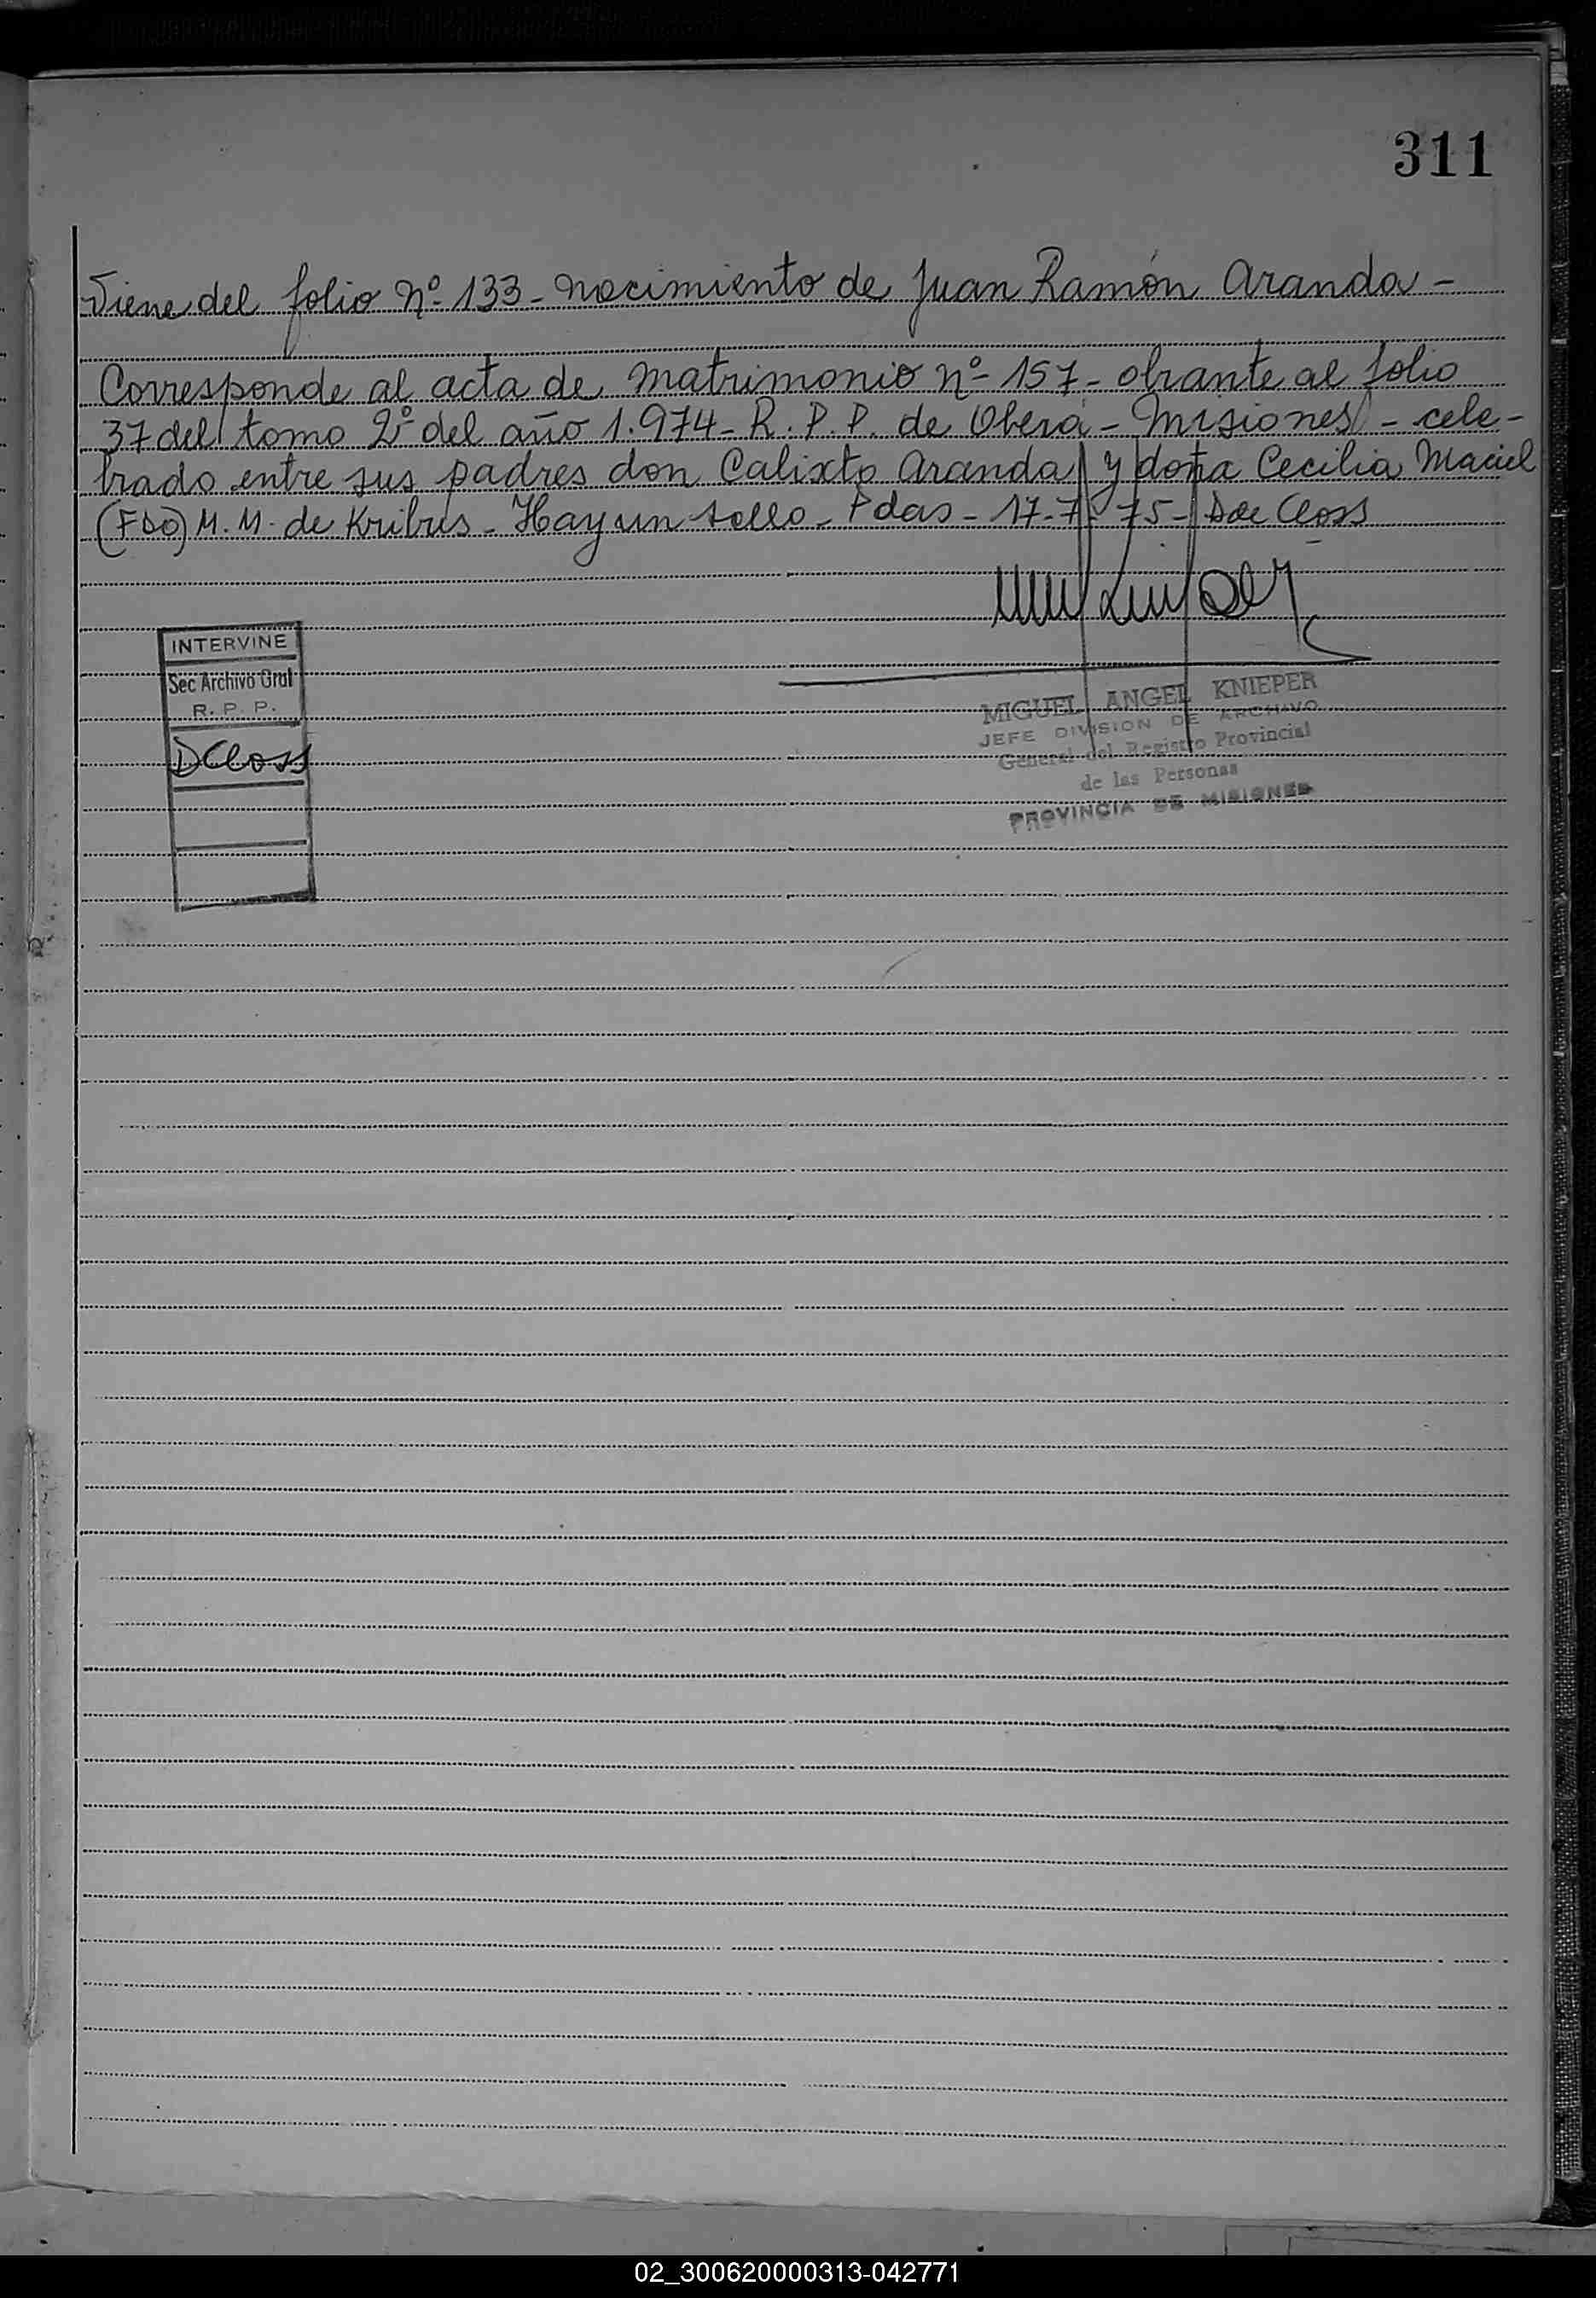 311
Viene del folio Nº 133 - nacimiento de Juan Ramón Aranda -
Corresponde al acta de matrimonio nº 157 - obrante al folio
37 del tomo 2º del año 1.974 - R. P. P. de Oberá - Misiones - cele-
brado entre sus padres don Calixto Aranda y doña Cecilia Maciel
(Fdo) M. M. de Kribus - Hay un sello - Pdas - 17-7-75 - D de Closs
INTERVINE
Sec Archivo Gral
R. P. P.
DCloss
MIGUEL ANGEL KNIEPER
JEFE DIVISION DE ARCHIVO
General del Registro Provincial
de las Personas
PROVINCIA DE MISIONES
02_300620000313-042771